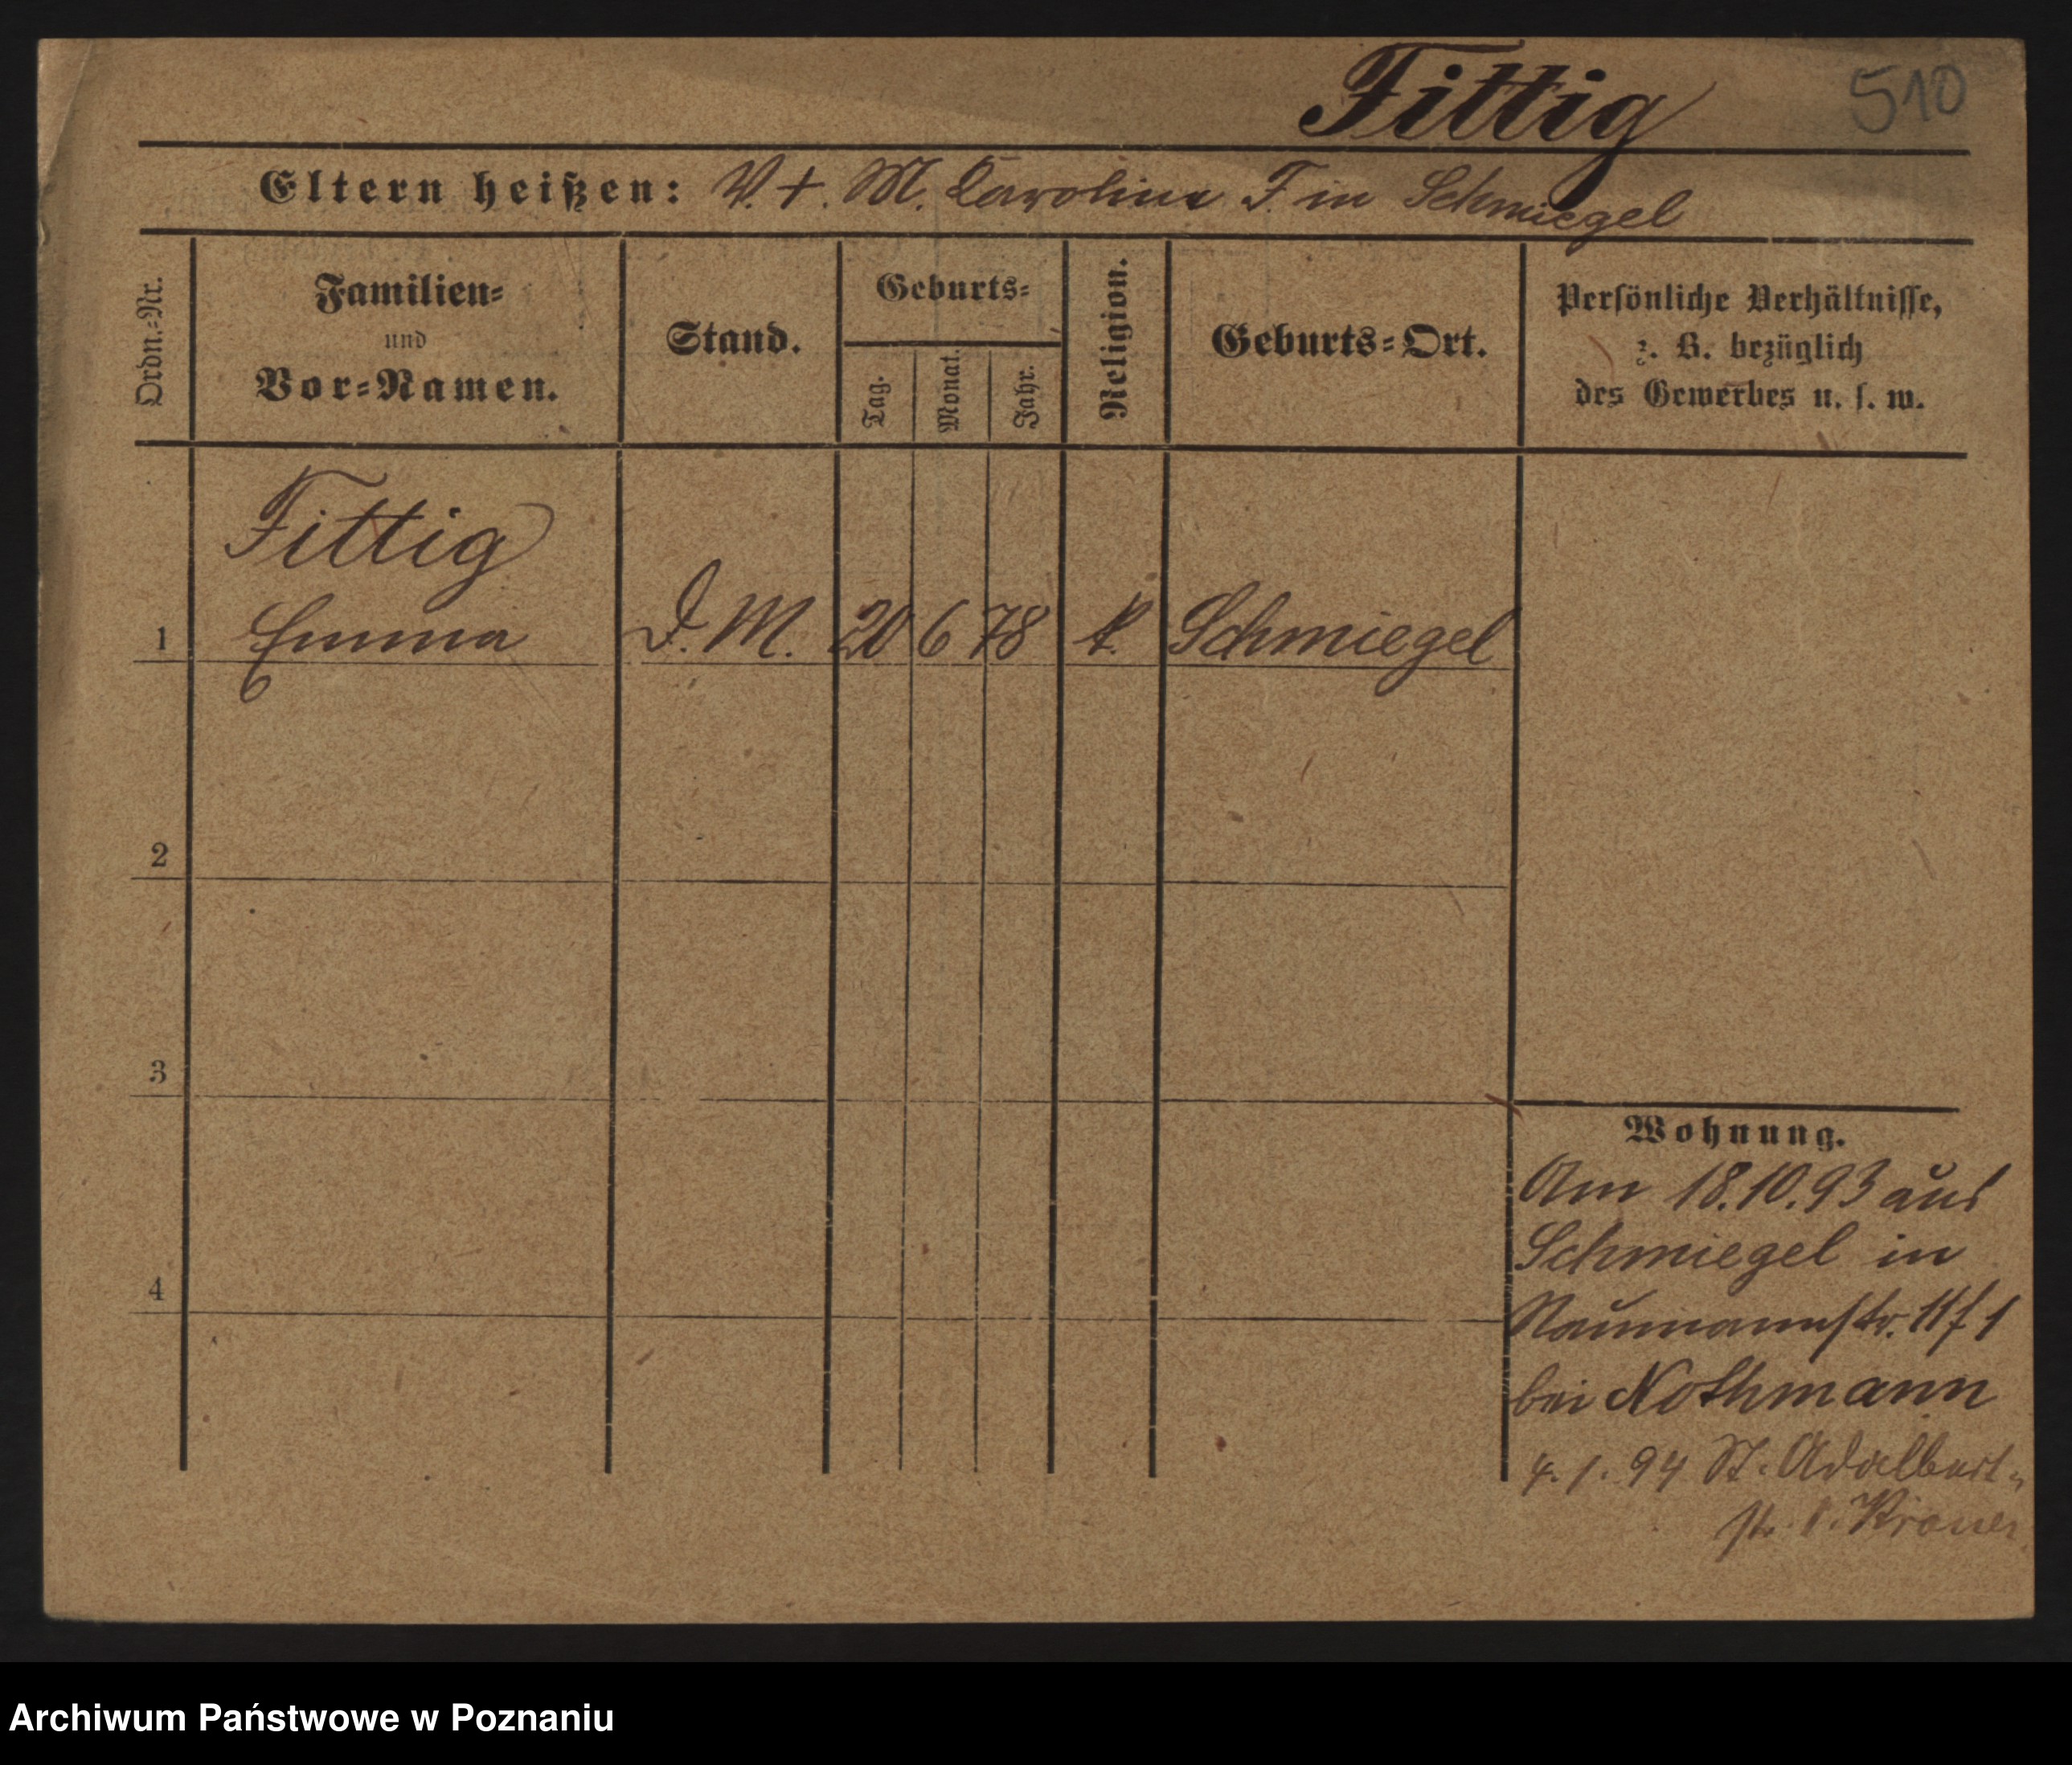 Fittig 510
Eltern heißen: V. +. M. Caroline F. in Schmiegel
Ordn.=Nr.
Familien=
und
Vor=Namen.
Stand.
Geburts=
Tag.
Monat.
Jahr.
Religion.
Geburts=Ort.
Persönliche Verhältnisse,
z. B. bezüglich
des Gewerbes u. s. w.
Fittig
1 Emma D. M. 20 6 78 k. Schmiegel
2
3
4
Wohnung.
Am 18.10.93 aus
Schmiegel in
Naumannstr. 11 f 1
bei Nothmann
4. 1. 94 St. Adalbert-
str. 1.
Archiwum Państwowe w Poznaniu